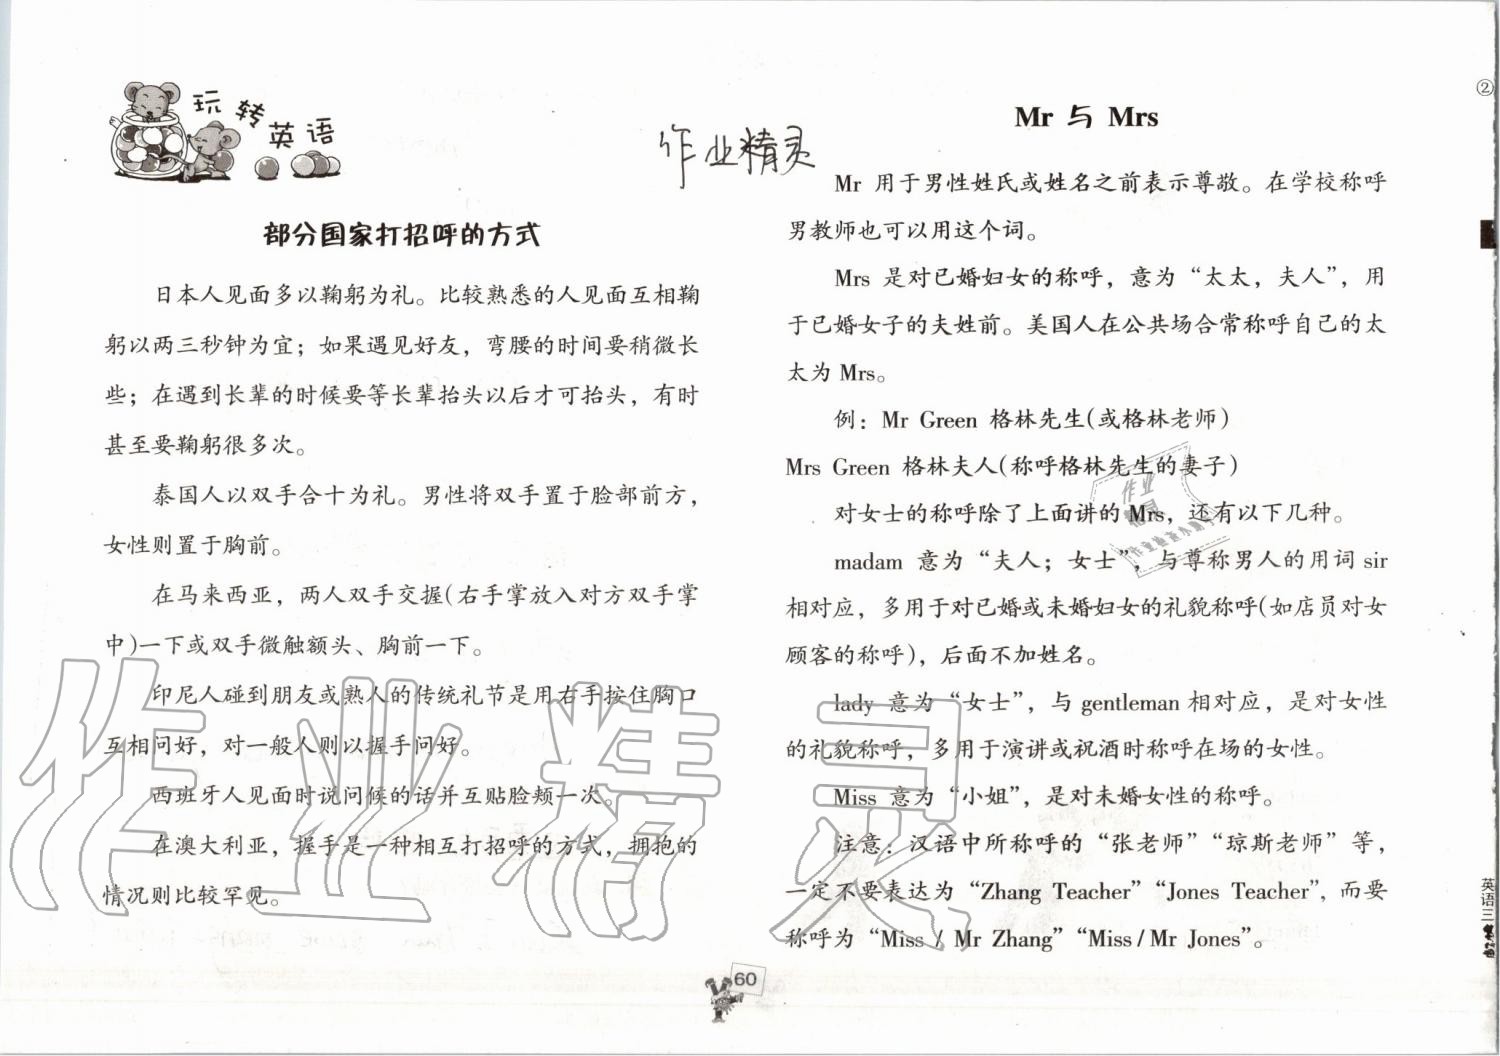 玩转英语
部分国家打招呼的方式
日本人见面多以鞠躬为礼。比较熟悉的人见面互相鞠
躬以两三秒钟为宜；如果遇见好友，弯腰的时间要稍微长
些；在遇到长辈的时候要等长辈抬头以后才可抬头，有时
甚至要鞠躬很多次。
泰国人以双手合十为礼。男性将双手置于脸部前方，
女性则置于胸前。
在马来西亚，两人双手交握(右手掌放入对方双手掌
中)一下或双手微触额头、胸前一下。
印尼人碰到朋友或熟人的传统礼节是用右手按住胸口
互相问好，对一般人则以握手问好。
西班牙人见面时说问候的话并互贴脸颊一次。
在澳大利亚，握手是一种相互打招呼的方式，拥抱的
情况则比较罕见。
作业精灵
Mr 与 Mrs
Mr 用于男性姓氏或姓名之前表示尊敬。在学校称呼
男教师也可以用这个词。
Mrs 是对已婚妇女的称呼，意为“太太，夫人”，用
于已婚女子的夫姓前。美国人在公共场合常称呼自己的太
太为 Mrs。
例：Mr Green 格林先生(或格林老师)
Mrs Green 格林夫人(称呼格林先生的妻子)
对女士的称呼除了上面讲的 Mrs，还有以下几种。
madam 意为“夫人；女士”，与尊称男人的用词 sir
相对应，多用于对已婚或未婚妇女的礼貌称呼(如店员对女
顾客的称呼)，后面不加姓名。
lady 意为“女士”，与 gentleman 相对应，是对女性
的礼貌称呼，多用于演讲或祝酒时称呼在场的女性。
Miss 意为“小姐”，是对未婚女性的称呼。
注意：汉语中所称呼的“张老师”“琼斯老师”等，
一定不要表达为“Zhang Teacher”“Jones Teacher”，而要
称呼为“Miss / Mr Zhang”“Miss / Mr Jones”。
60
②
英语三
作业精灵
作业精灵